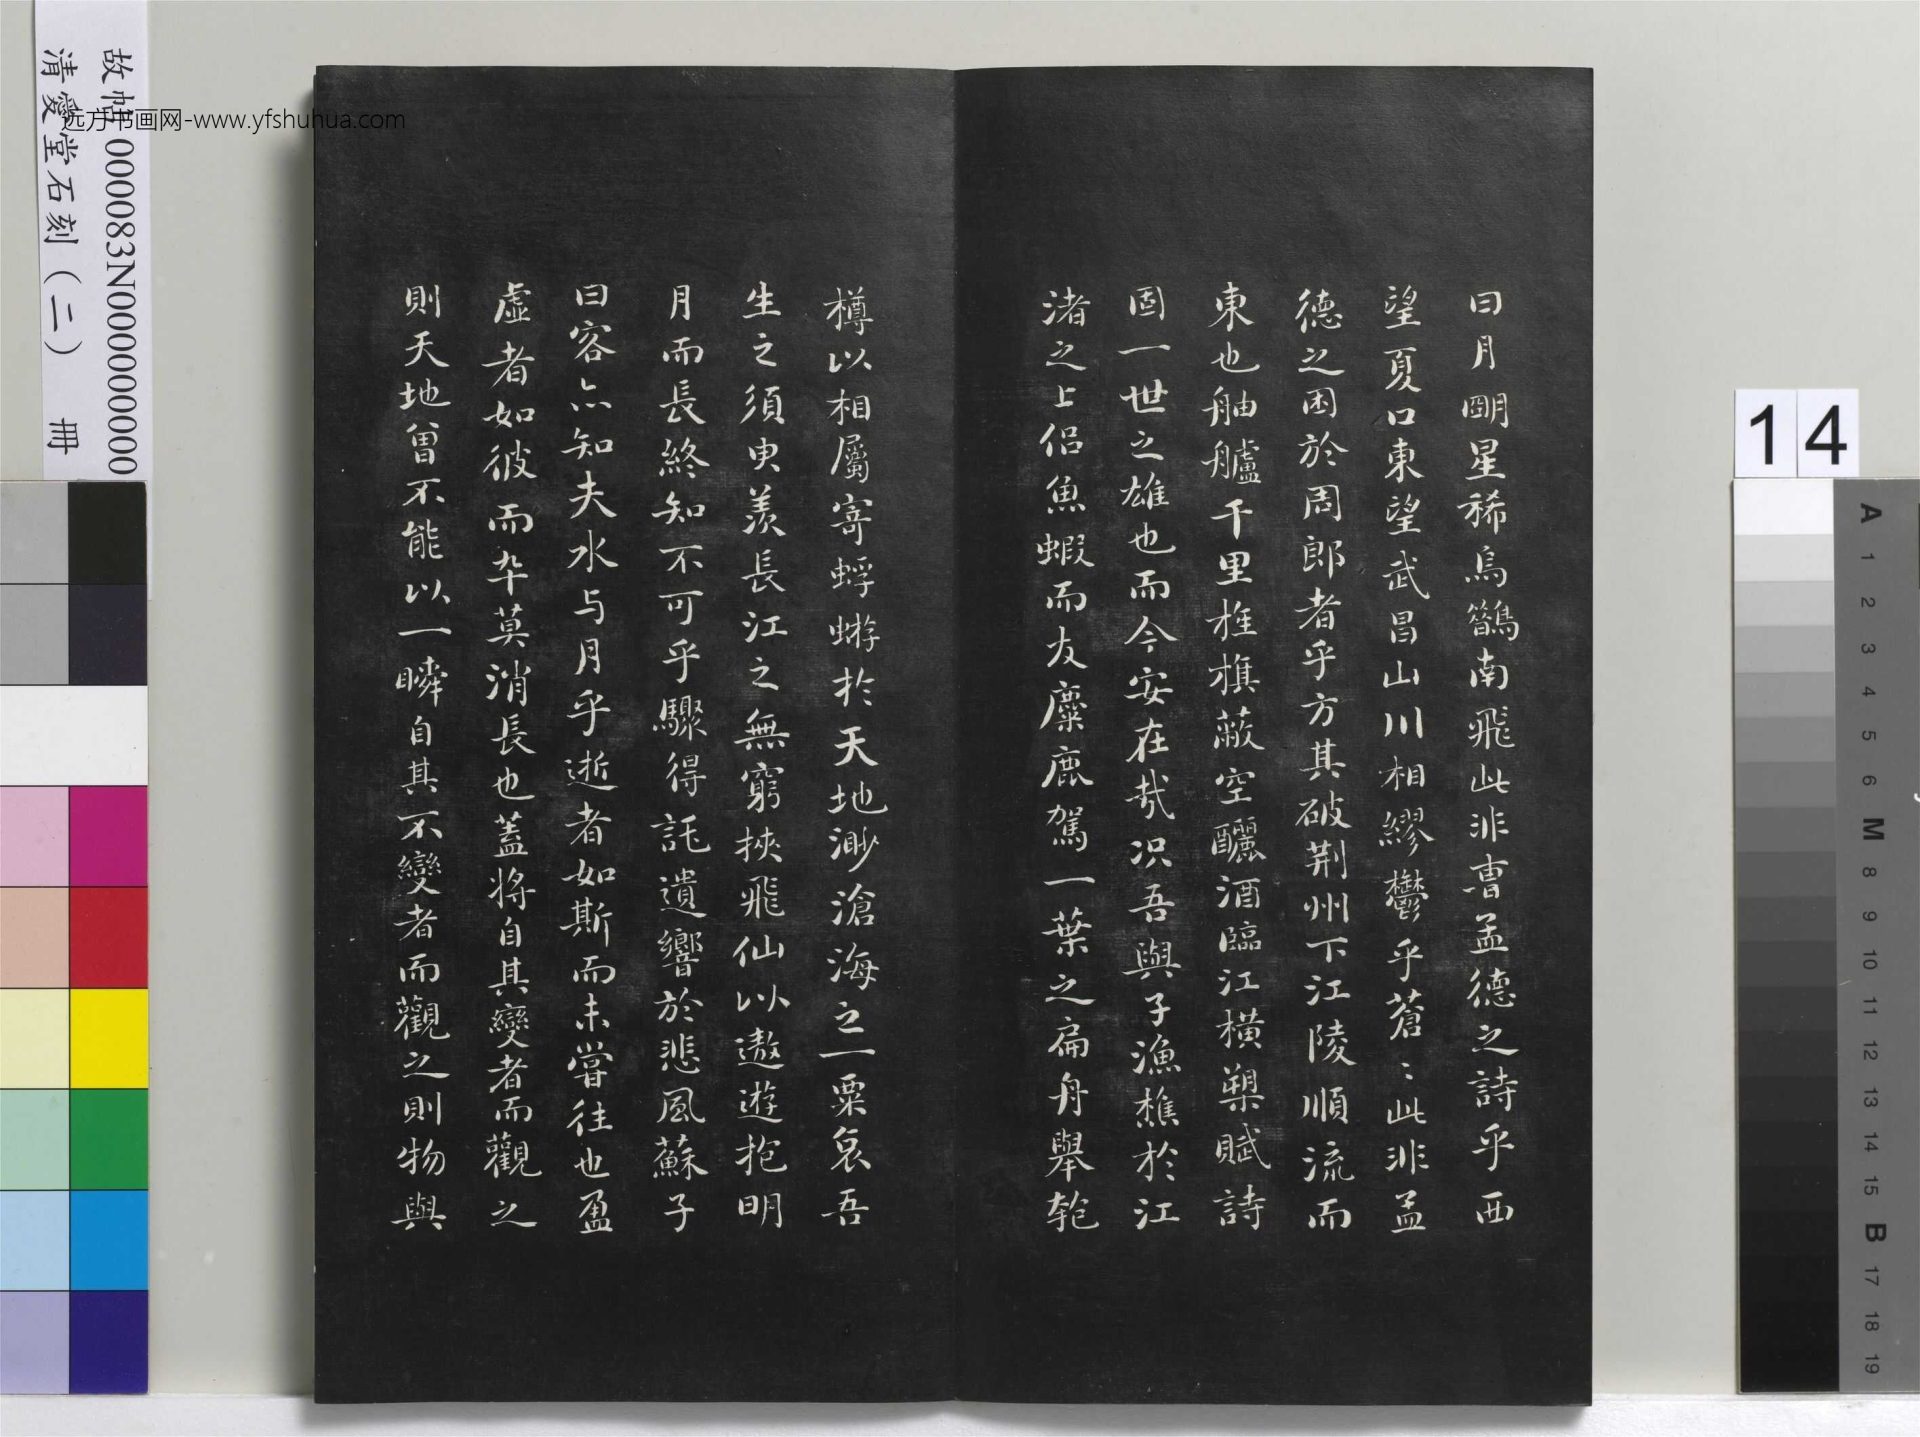 曰月明星稀烏鵲南飛此非曹孟德之詩乎西
望夏口東望武昌山川相繆鬱乎蒼〻此非孟
德之困於周郎者乎方其破荆州下江陵順流而
東也舳艫千里旌旗蔽空釃酒臨江橫槊賦詩
固一世之雄也而今安在哉况吾與子漁樵於江
渚之上侣魚蝦而友麋鹿駕一葉之扁舟舉匏
樽以相屬寄蜉蝣於天地渺滄海之一粟哀吾
生之須臾羨長江之無窮挾飛仙以遨遊抱明
月而長終知不可乎驟得託遺響於悲風蘇子
曰客亦知夫水与月乎逝者如斯而未嘗往也盈
虛者如彼而卒莫消長也蓋將自其變者而觀之
則天地曾不能以一瞬自其不變者而觀之則物與
故帖000083N000000000
清愛堂石刻（二） 冊
远方书画网-www.yfshuhua.com
14
A 1 2 3 4 5 6 M 8 9 10 11 12 13 14 15 B 17 18 19